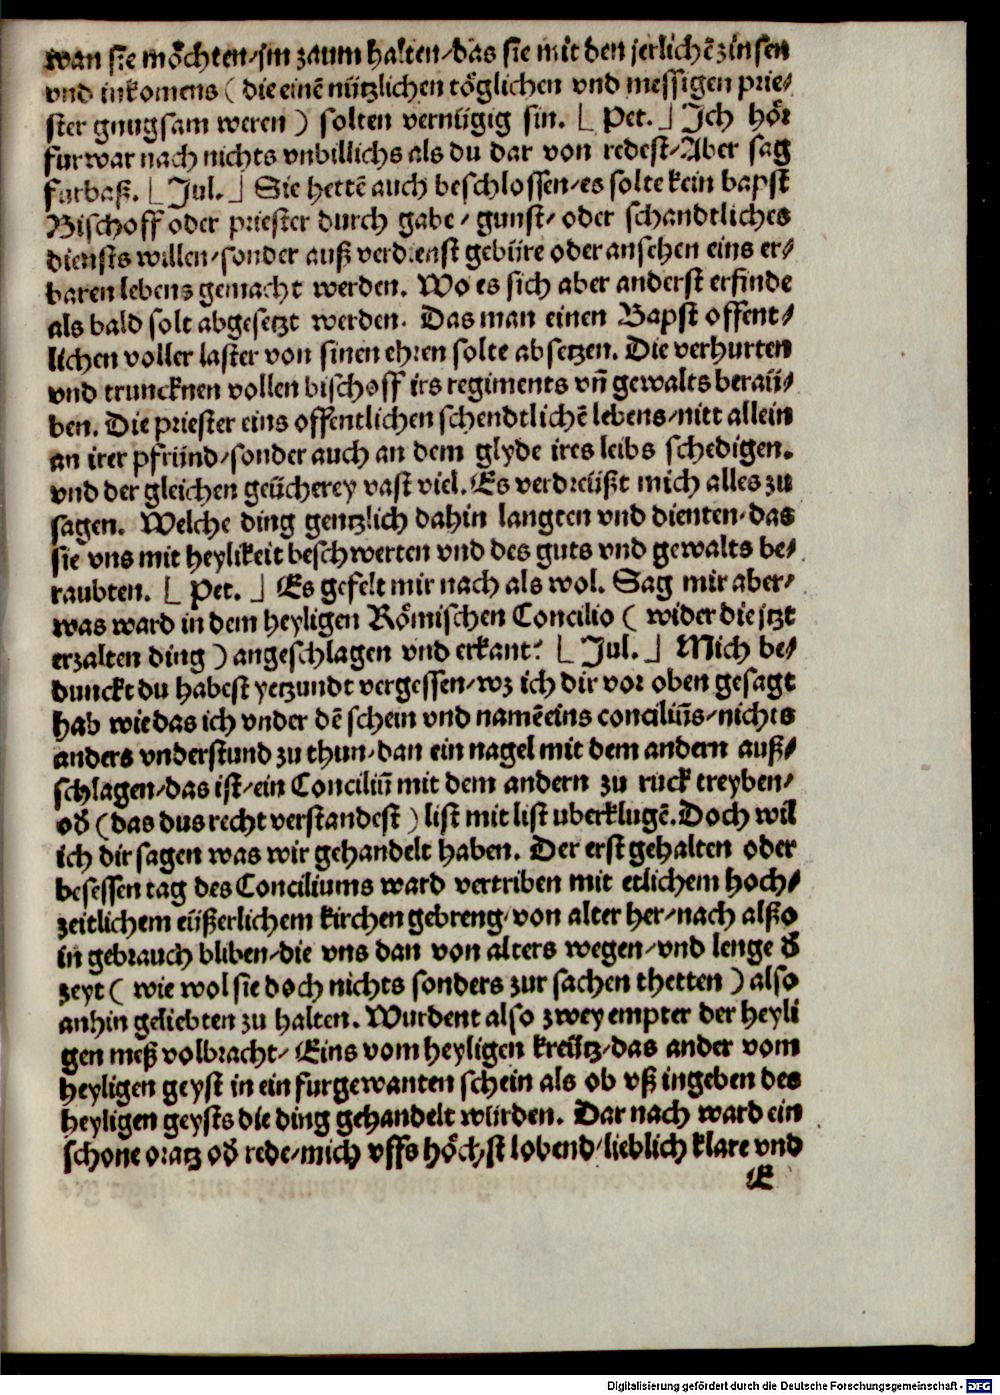 wan sie möchten/im zaum halten/das sie mit den jerlichē zinsen
vnd inkomens ( die einē nützlichen töglichen vnd messigen prie/
ster gnugsam weren ) solten vernügig sin. [ Pet. ] Ich hör
furwar nach nichts vnbillichs als du dar von redest/Aber sag
furbaß. [ Jul. ] Sie hettē auch beschlossen/es solte kein bapst
Bischoff oder priester durch gabe/ gunst/ oder schandtliches
diensts willen/sonder auß verdienst gebüre oder ansehen eins er/
baren lebens gemacht werden. Wo es sich aber anderst erfinde
als bald solt abgesetzt werden. Das man einen Bapst offent/
lichen voller laster von sinen ehren solte absetzen. Die verhurten
vnd truncknen vollen bischoff irs regiments vñ gewalts beraü/
ben. Die priester eins offentlichen schendtlichē lebens/nitt allein
an irer pfründ/sonder auch an dem glyde ires leibs schedigen.
vnd der gleichen geücherey vast viel. Es verdreüßt mich alles zu
sagen. Welche ding gentzlich dahin langten vnd dienten/das
sie vns mit heylikeit beschwerten vnd des guts vnd gewalts be/
raubten. [ Pet. ] Es gefelt mir nach als wol. Sag mir aber/
was ward in dem heyligen Römischen Concilio ( wider die jtzt
erzalten ding ) angeschlagen vnd erkant? [ Jul. ] Mich be/
dunckt du habest yetzundt vergessen/wz ich dir vor oben gesagt
hab wie das ich vnder dē schein vnd namē eins conciliũs/nichts
anders vnderstund zu thun/dan ein nagel mit dem andern auß/
schlagen/das ist/ein Conciliũ mit dem andern zu ruck treyben/
oď (das dus recht verstandest ) list mit list uberklugē. Doch wil
ich dir sagen was wir gehandelt haben. Der erst gehalten oder
besessen tag des Conciliums ward vertriben mit etlichem hoch/
zeitlichem eüßerlichem kirchen gebreng/von alter her/nach alßo
in gebrauch bliben/die vns dan von alters wegen/vnd lenge ď
zeyt ( wie wol sie doch nichts sonders zur sachen thetten ) also
anhin geliebten zu halten. Wurdent also zwey empter der heyli
gen meß volbracht/ Eins vom heyligen kreütz/das ander vom
heyligen geyst in ein furgewanten schein als ob vß ingeben des
heyligen geysts die ding gehandelt würden. Dar nach ward ein
schone oratz oď rede/mich vffs höchst lobend/lieblich klare vnd
E
Digitalisierung gefördert durch die Deutsche Forschungsgemeinschaft - DFG